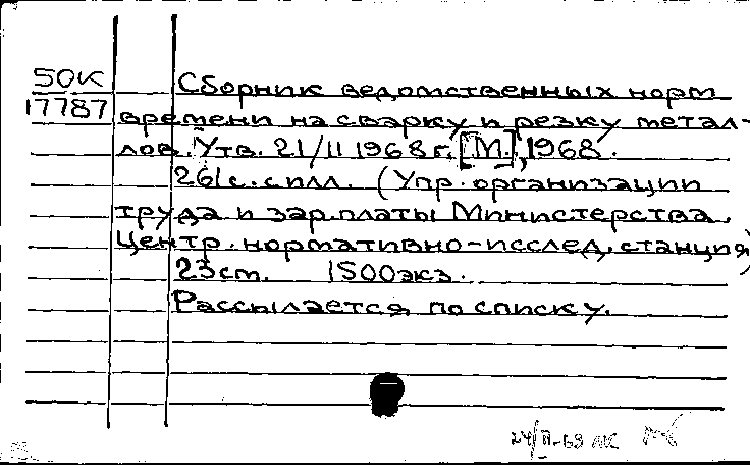 50К
17787
Сборник ведомственных норм
времени на сварку и резку метал-
лов. Утв. 21/II 1968 г. [М.], 1968.
261 с. с илл. (Упр. организации
труда и зар. платы Министерства.
Центр. нормативно-исслед. станция)
23 см. 1500 экз.
Рассылается по списку.
24/II-69